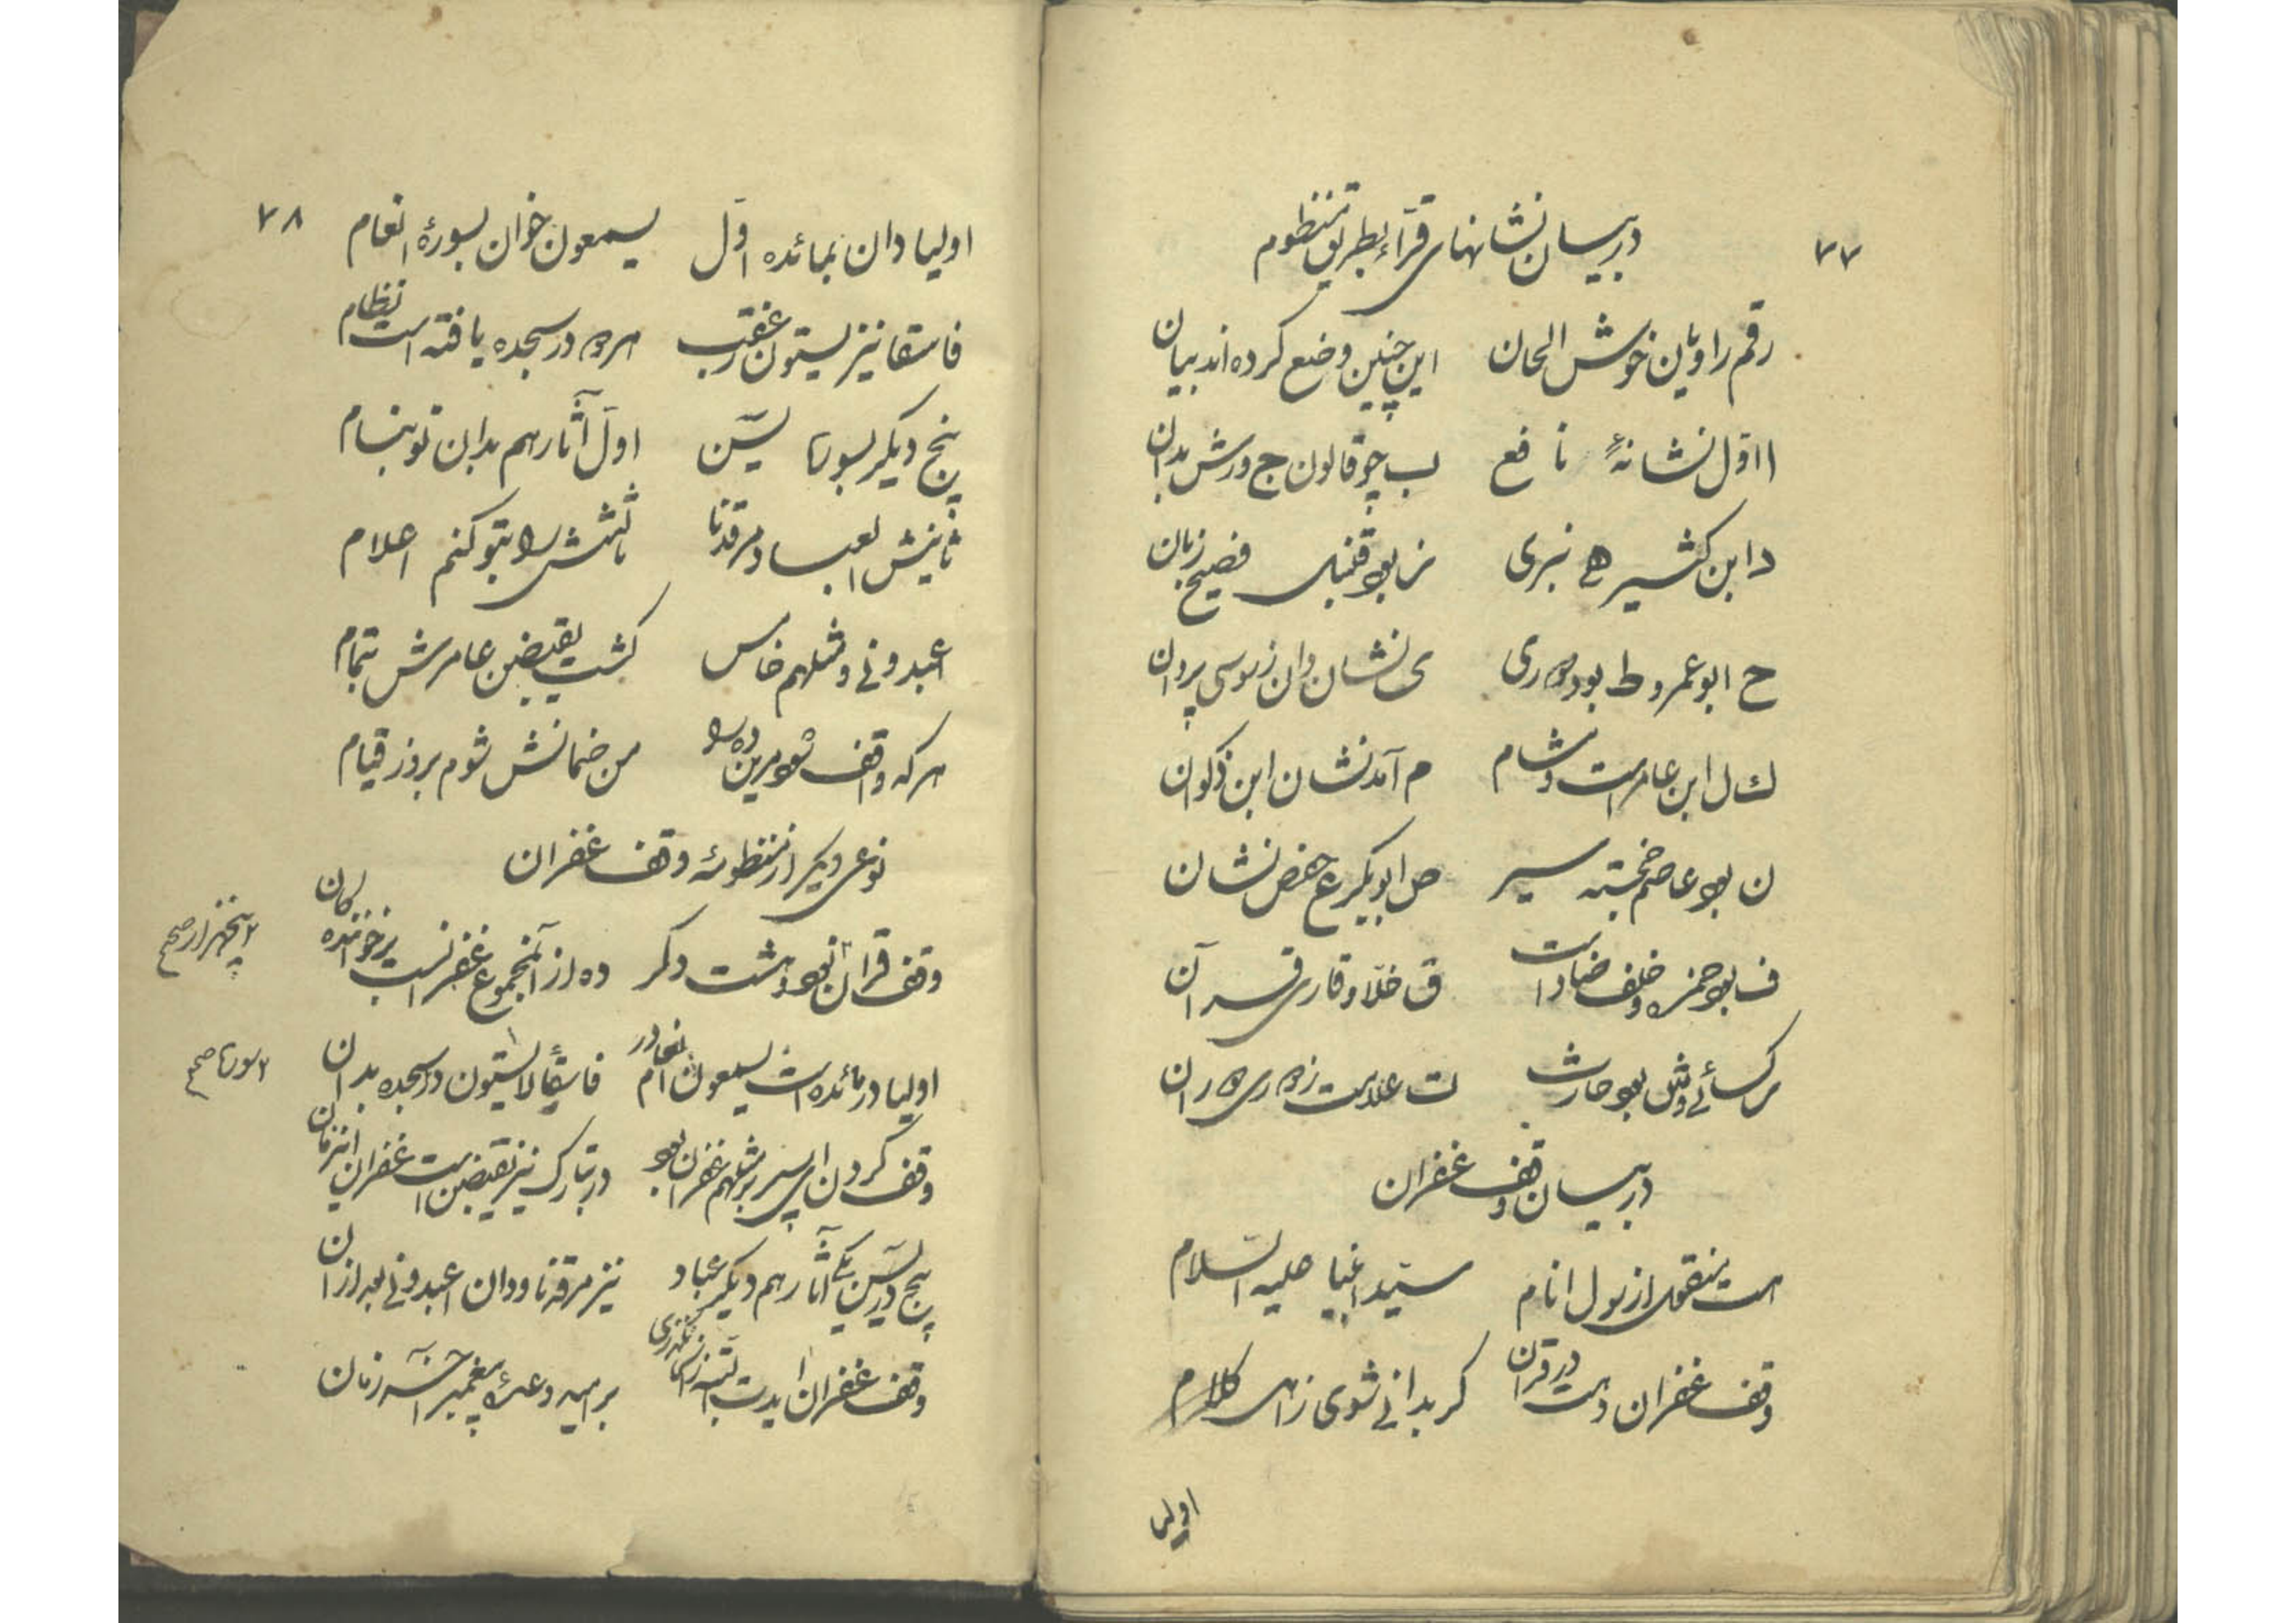 ۷۷
در بیان نشانهای قرّاء بطریق منظوم
رقم راویان خوش الحان این چنین وضع کرده اند بیان
ا اوّل نشانهٔ نافع ب چو قالون ج ورش بدان
د ابن کثیر ه بزی ز بود قنبل فصیح زبان
ح ابو عمرو ط بود دوری ی نشان دان ز سوسی
ك ل ابن عامرست و هشام م آمد نشان ابن ذکوان
ن بود عاصم خجسته سیر ص ابوبکر ع حفص نشان
ف بود حمزه و خلف ضادست ق خلّاد قاری قرآن
ر کسائے و ش بود حارث ت علامت ز دوری
در بیان وقف غفران
هست منقول از رسول انام سیّد انبیا علیه السّلام
وقف غفران دهست در قرآن کر بدانے شوی ز اهل کلام
اولیا
۷۸
اولیا دان بمائده اوّل یسمعون خوان بسورهٔ انعام
فاسقا نیز یستون عقب هر دو در سجده یافته است نظام
پنج دیکر بسورهٔ یٰسٓن اوّل آثارهم بدان تو بنام
ثانیش العباد مرقدنا ثالثش را بتو کنم اعلام
اعبدونے و مثلهم خامس کشت یقبضن عاشرش بتمام
هر که واقف شود برین ده را من ضمانش شوم بروز قیام
نوعی دیکر از منظومهٔ وقف غفران
وقف قرآن بود هشت دکر ده از آنمجموع غفرانست بر خواننده کان
پنجهزار صح
اولیا در مائده است یسمعون انعام در فاسقًا لا یستون در سجده بدان
سوره صح
وقف کردن ای پسر بر مثلهم غفران بود در تبارک نیز یقبضن است غفران
پنج در یٰسٓن یکے آثارهم دیکر عباد نیز مرقدنا ودان اعبدونے بعد ازان
وقف غفران بر امید وعدهٔ پیغمبر آخر زمان